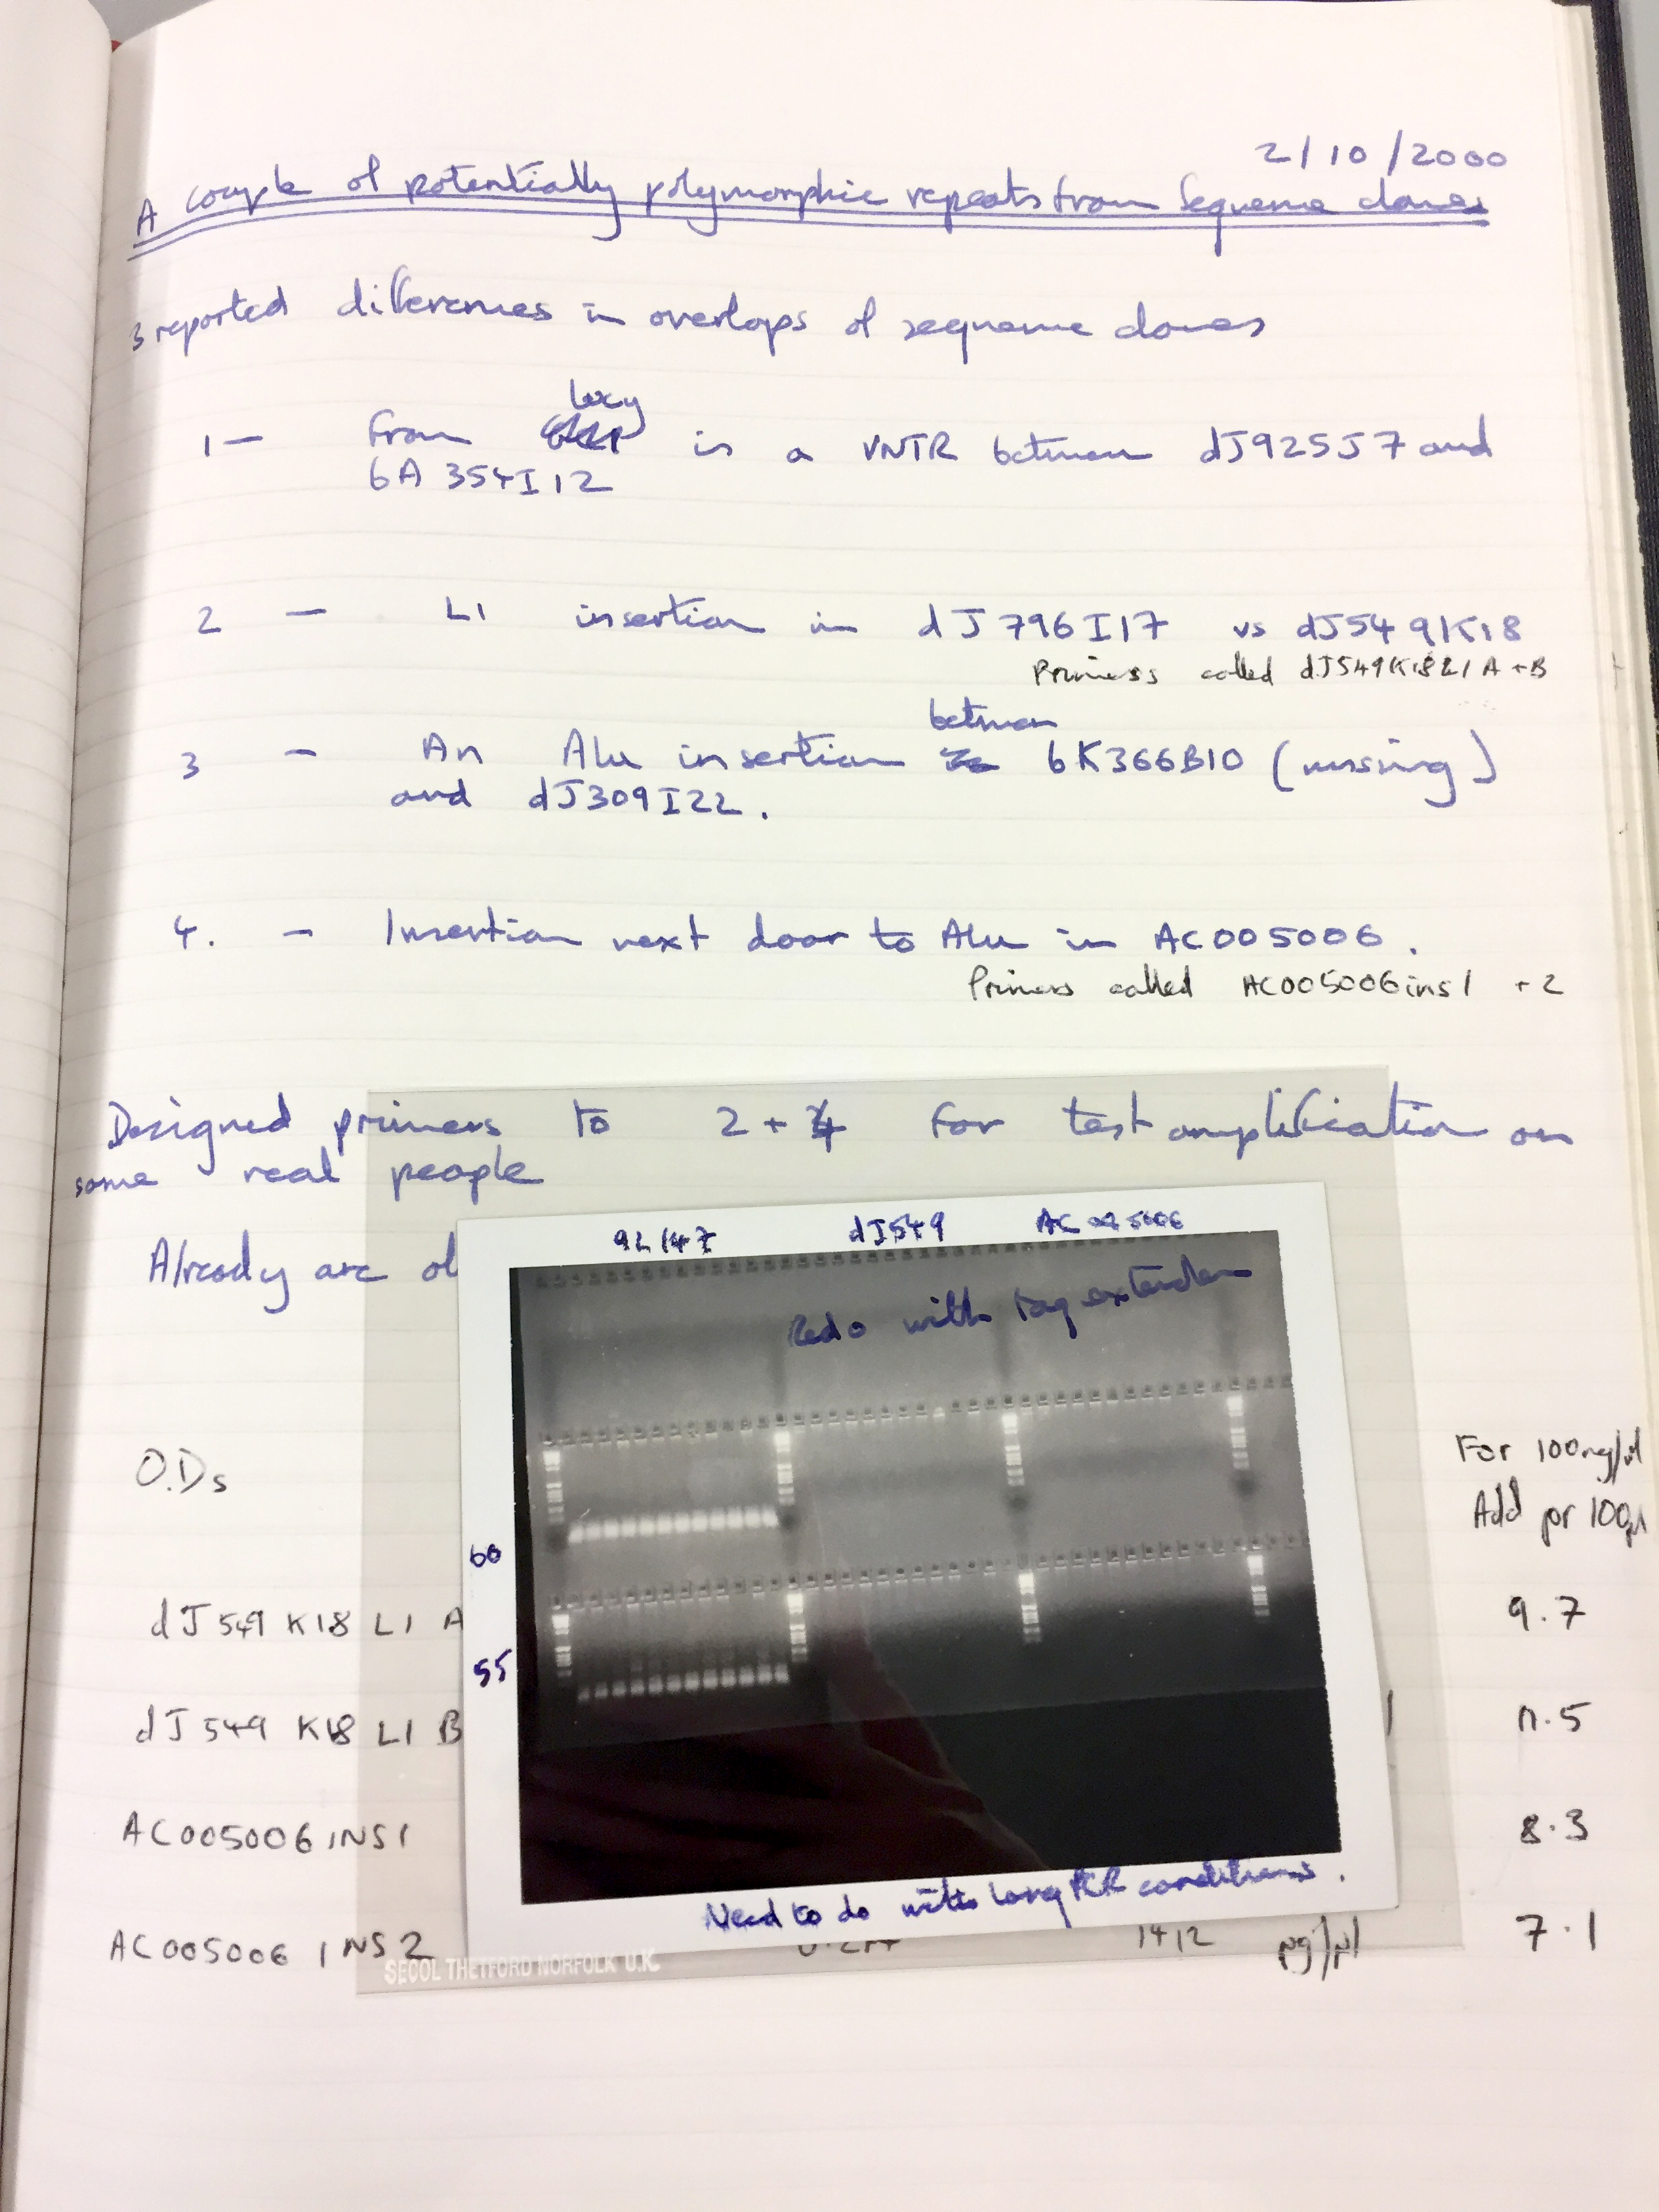 2/10/2000
A couple of potentially polymorphic repeats from Sequence clones
3 reported differences in overlaps of sequence clones
Lucy
1 — From is a VNTR between dJ925J7 and
bA 354I12
2 — L1 insertion in dJ796I17 vs dJ549K18
Primers called dJ549K18L1 A + B
between
3 — An Alu insertion 6K366B10 (missing)
and dJ309I22.
4. — Insertion next door to Alu in AC005006.
Primers called AC005006ins1 + 2
Designed primers to 2 + 4 for test amplification on
some real people
Already are
9L147 dJ549 AC005006
Redo with taq extender
O.Ds
For 100ng/µl
Add pr 100µl
60
dJ549 K18 L1 A 9.7
55
dJ549 K18 L1 B
AC005006 INS1 8.3
Need to do with Long PCR conditions.
AC005006 INS2 1412 µg/µl 7.1
SECOL THETFORD NORFOLK U.K.